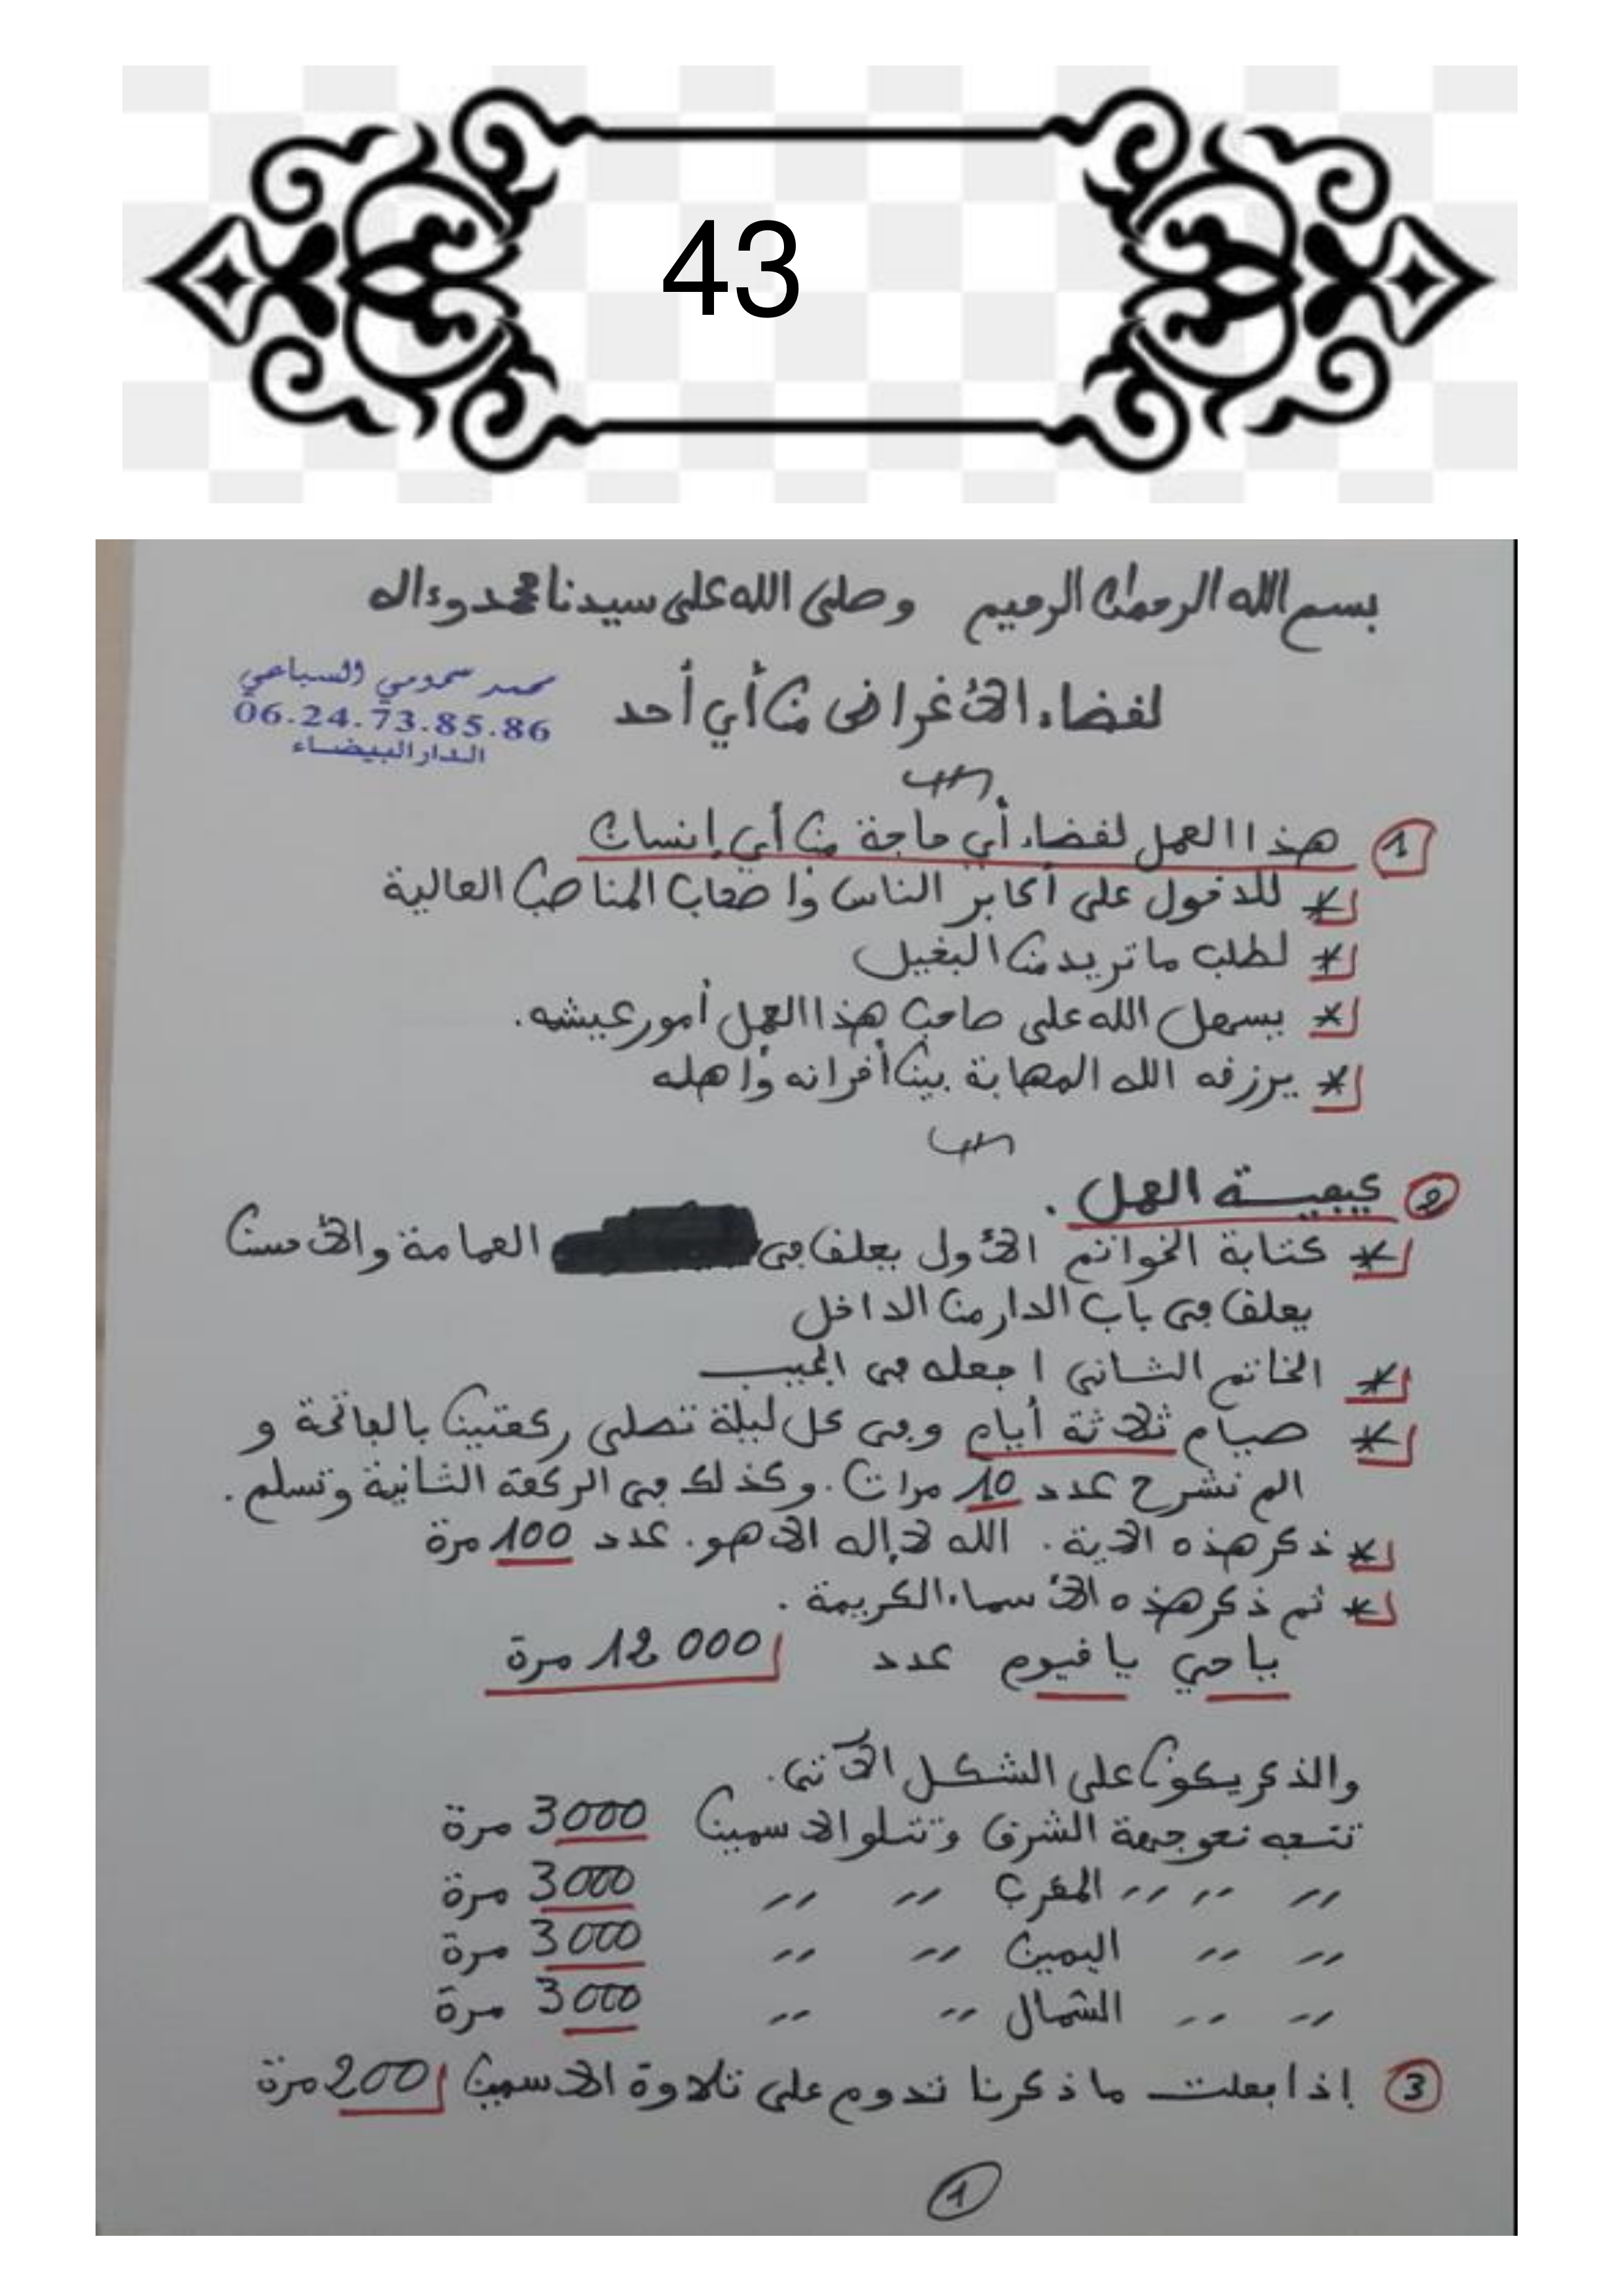 43
بسم الله الرحمان الرحيم وصلى الله على سيدنا محمد وءاله
لقضاء الأغراض من أي أحد
محمد سمومي السباعي
06.24.73.85.86
الدار البيضاء
1 هذا العمل لقضاء أي حاجة من أي إنسان
* للدخول على أكابر الناس وأصحاب المناصب العالية
* لطلب ما تريد من البخيل
* يسهل الله على صاحب هذا العمل أمور عيشه.
* يرزقه الله المهابة بين أقرانه وأهله
2 كيفية العمل.
* كتابة الخواتم الأول يعلق في العمامة والأحسن
يعلق في باب الدار من الداخل
* الخاتم الثاني اجعله في الجيب
* صيام ثلاثة أيام وفي كل ليلة تصلي ركعتين بالفاتحة و
الم نشرح عدد 10 مرات. وكذلك في الركعة الثانية وتسلم.
* ذكر هذه الآية. الله لا إله إلا هو. عدد 100 مرة
* ثم ذكر هذه الأسماء الكريمة.
يا حي يا قيوم عدد 12 000 مرة
والذكر يكون على الشكل الآتي.
تتجه نحو جهة الشرق وتتلو الاسمين 3000 مرة
〃 〃 〃 المغرب 〃 〃 3000 مرة
〃 〃 اليمين 〃 〃 3000 مرة
〃 〃 الشمال 〃 〃 3000 مرة
3 إذا فعلت ما ذكرنا تدوم على تلاوة الاسمين 200 مرة
1